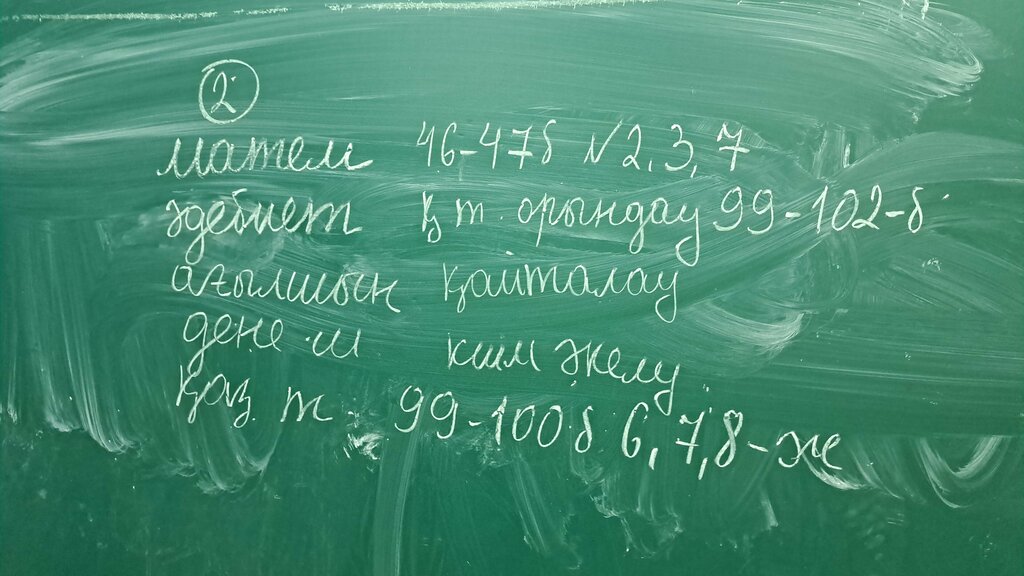 2
матем 46-47б №2,3,7
әдебиет қ т. орындау 99-102-б.
ағылшын қайталау
дене ш киім әкелу.
қаз т. 99-100б 6,7,8-ж